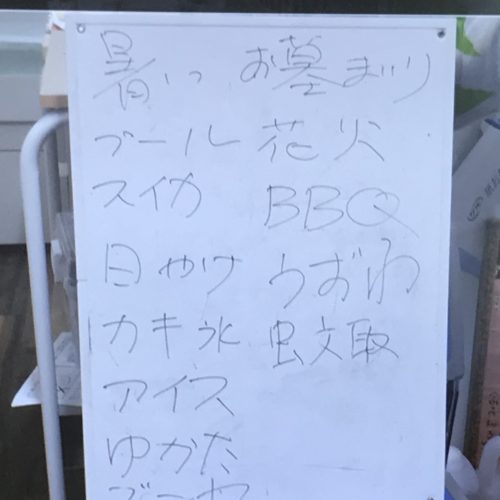 暑いっ
プール
スイカ
日やけ
カキ氷
アイス
ゆかた
お墓まいり
花火
BBQ
蚊取